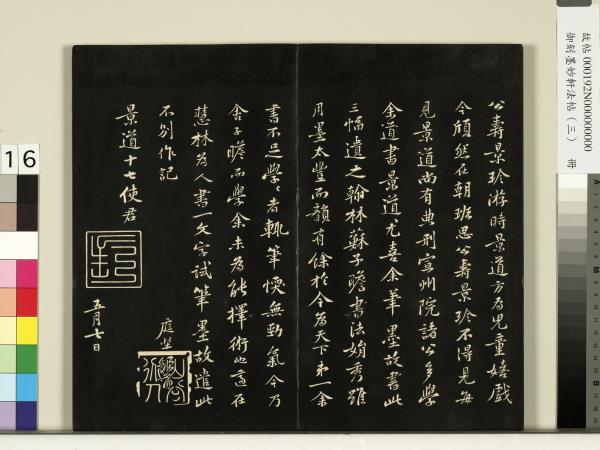 公壽景珍游時景道方為兒童嬉戲
今頎然在朝班思公壽景珍不得見每
見景道尚有典刑宣州院諸公多學
余道書景道尤喜余筆墨故書此
三幅遺之翰林蘇子瞻書法娟秀雖
用墨太豐而韻有餘於今為天下第一余
書不足學學者輒筆愞無勁氣今乃
舍子瞻而學余未為能擇術也適在
慧林為人書一文字試筆墨故遣此
不別作記
庭堅
景道十七使君
五月七日
故帖 000192N000000000
御刻墨妙軒法帖(三) 冊
16
A